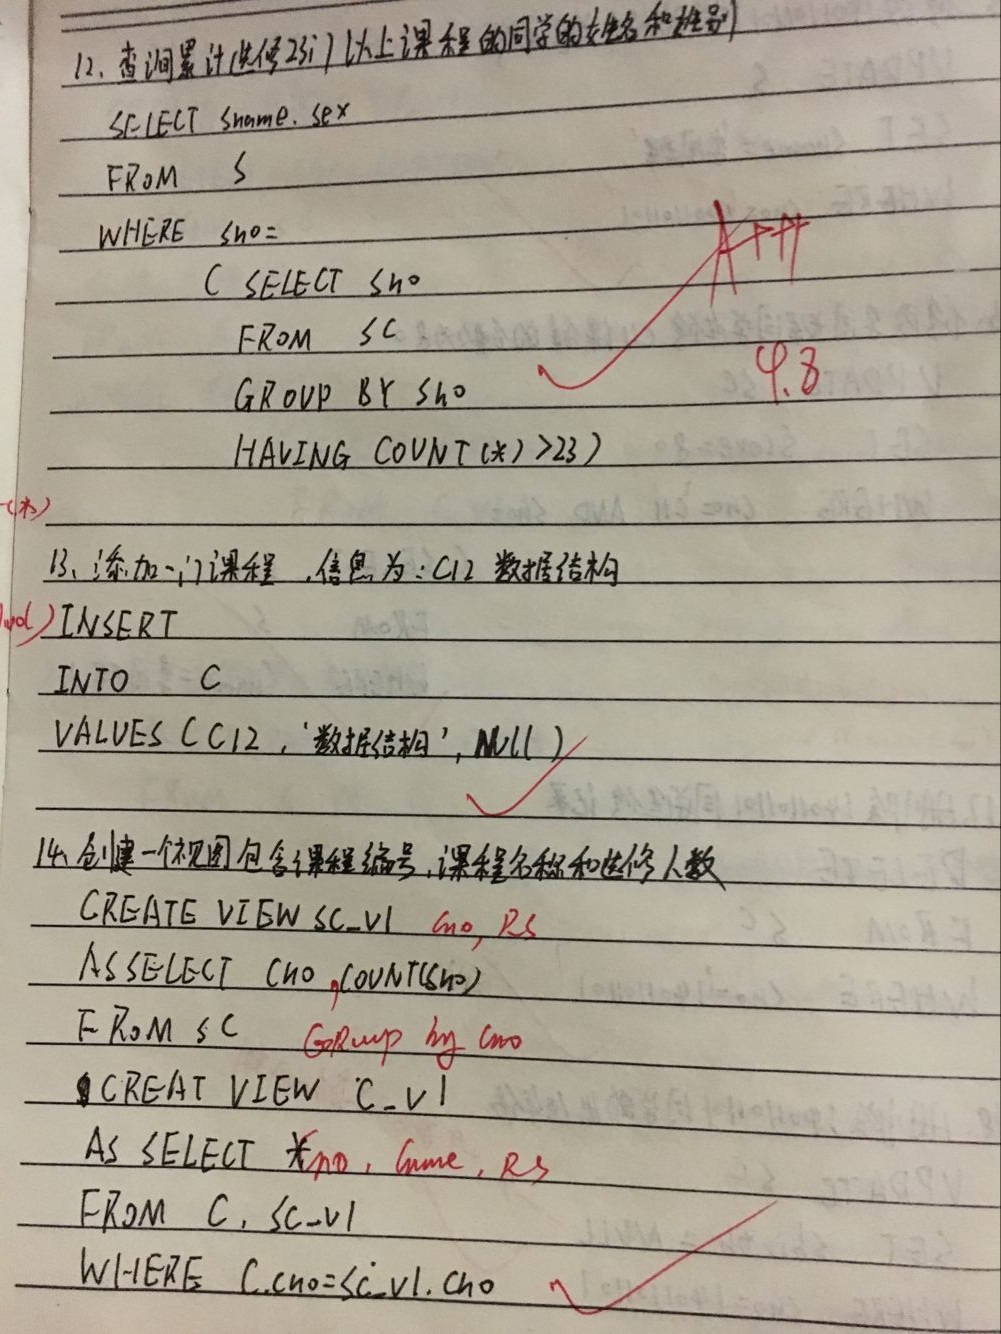 12、查询累计选修23门以上课程的同学的姓名和性别
SELECT sname. sex
FROM S
WHERE sno=
( SELECT sno
FROM SC
GROUP BY sno
HAVING COUNT(*)>23)
A+++
9.8
13、添加一门课程,信息为:C12 数据结构
INSERT
INTO C
VALUES (C12,'数据结构',Null)
14、创建一个视图包含课程编号,课程名称和选修人数
CREATE VIEW SC_V1 Cno, RS
AS SELECT Cno,COUNT(sno)
FROM SC Group by Cno
CREAT VIEW C_V1
AS SELECT *no, Cname, RS
FROM C, SC_V1
WHERE C.cno=SC_V1.Cno